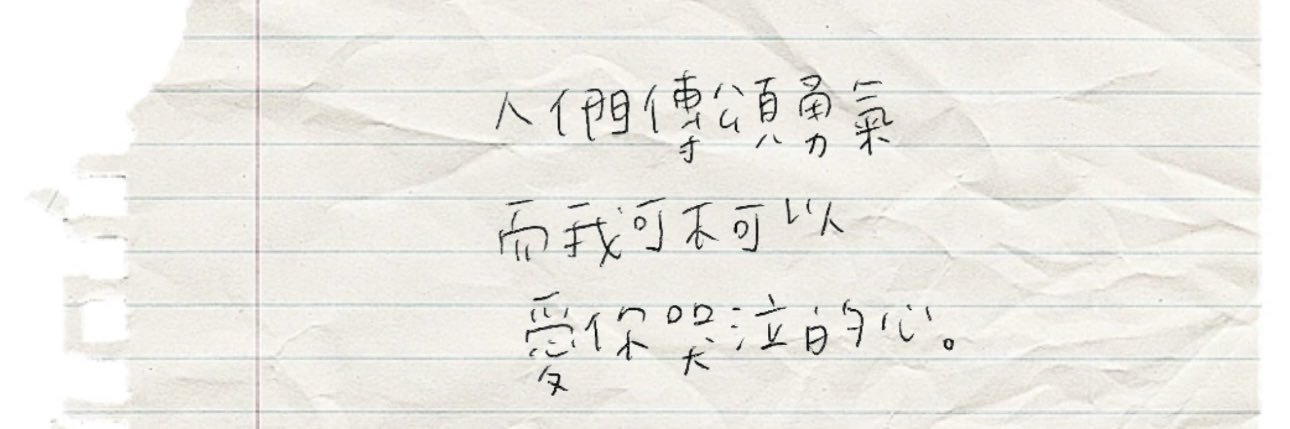 人們傳頌勇氣
而我可不可以
愛你哭泣的心。